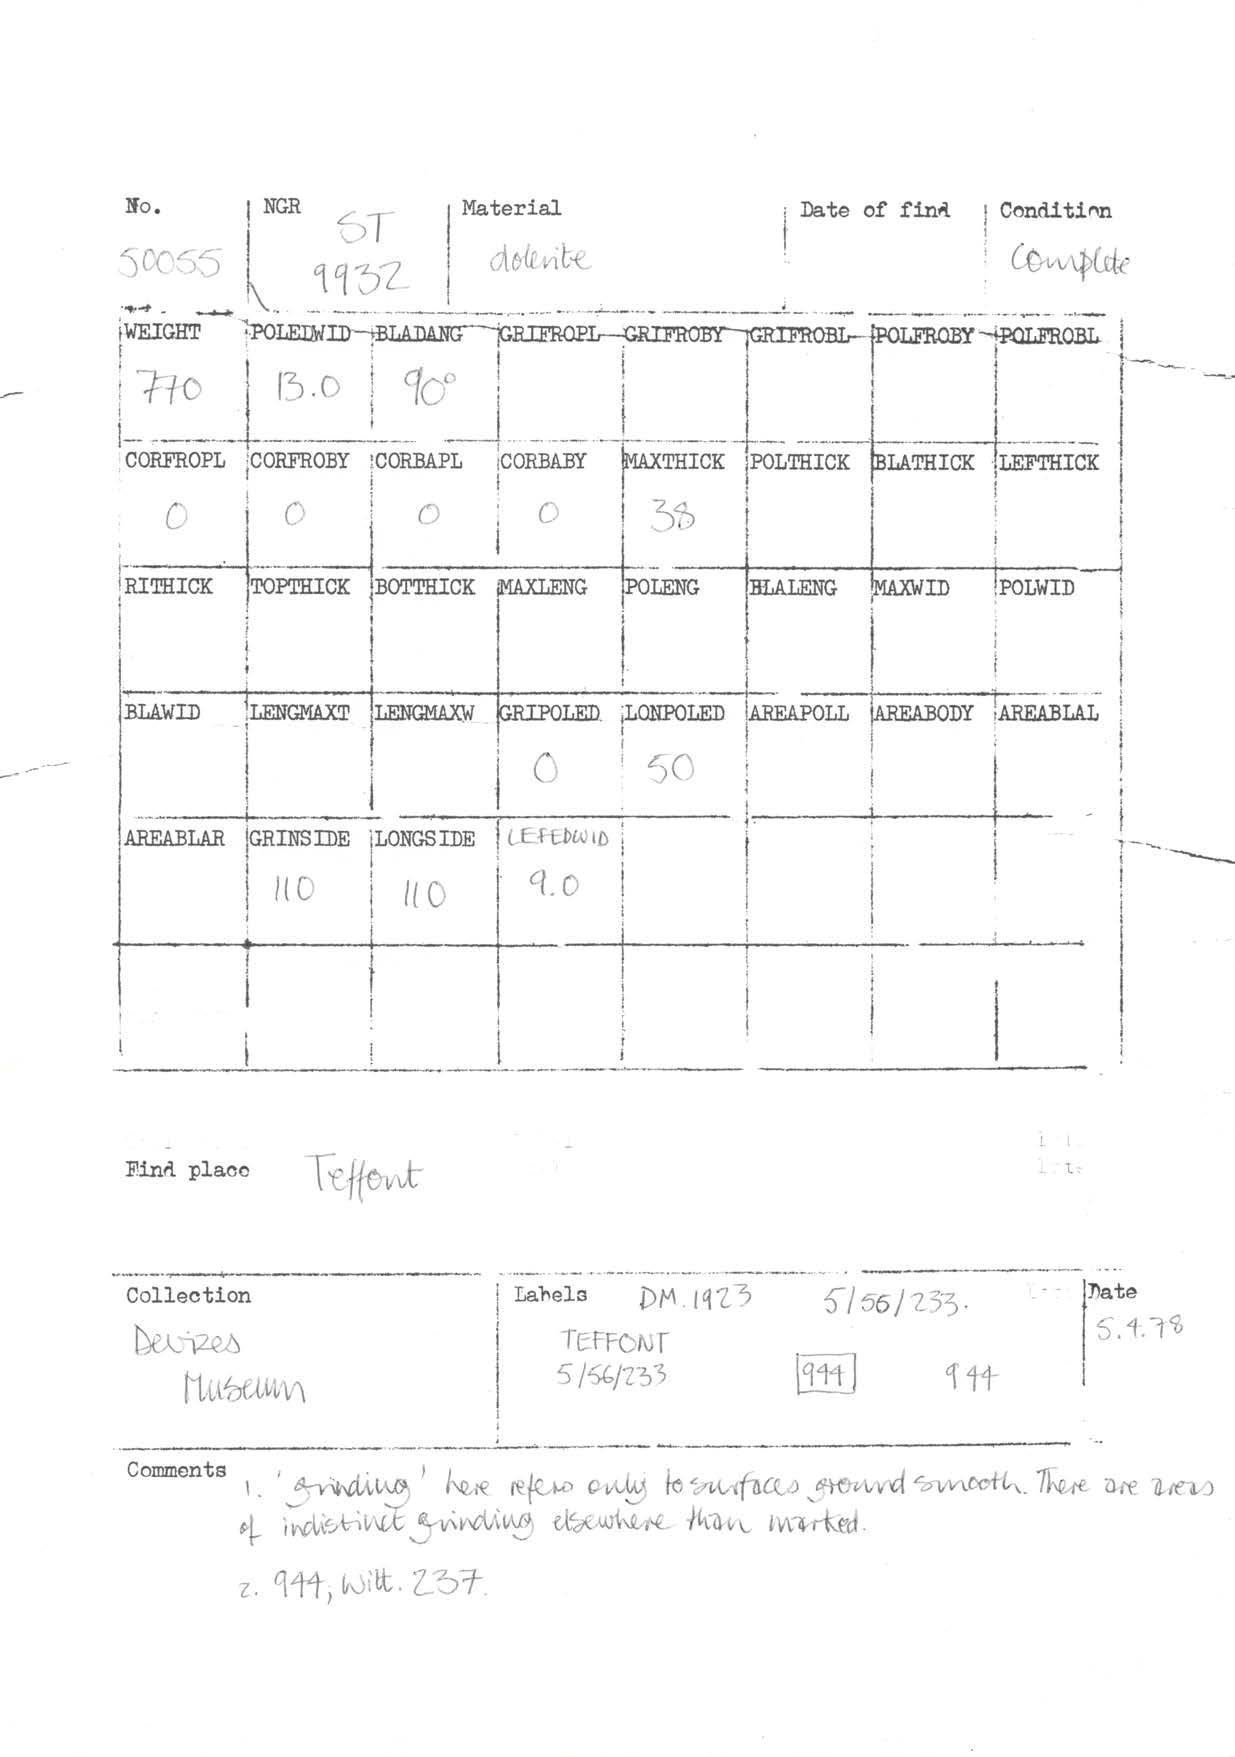 No. NGR Material Date of find Condition
50055 ST 9932 dolerite Complete
WEIGHT POLEDWID BLADANG GRIFROPL GRIFROBY GRIFROBL POLFROBY POLFROBL
770 13.0 90°
CORFROPL CORFROBY CORBAPL CORBABY MAXTHICK POLTHICK BLATHICK LEFTHICK
0 0 0 0 38
RITHICK TOPTHICK BOTTHICK MAXLENG POLENG BLALENG MAXWID POLWID
BLAWID LENGMAXT LENGMAXW GRIPOLED LONPOLED AREAPOLL AREABODY AREABLAL
0 50
AREABLAR GRINSIDE LONGSIDE LEFEDWID
110 110 9.0
Find place Teffont
Collection Labels DM.1923 5/56/233. Date
Devizes TEFFONT 5.4.78
Museum 5/56/233 944 944
Comments 1. 'grinding' here refers only to surfaces ground smooth. There are areas
of indistinct grinding elsewhere than marked.
2. 944, Wilt. 237.